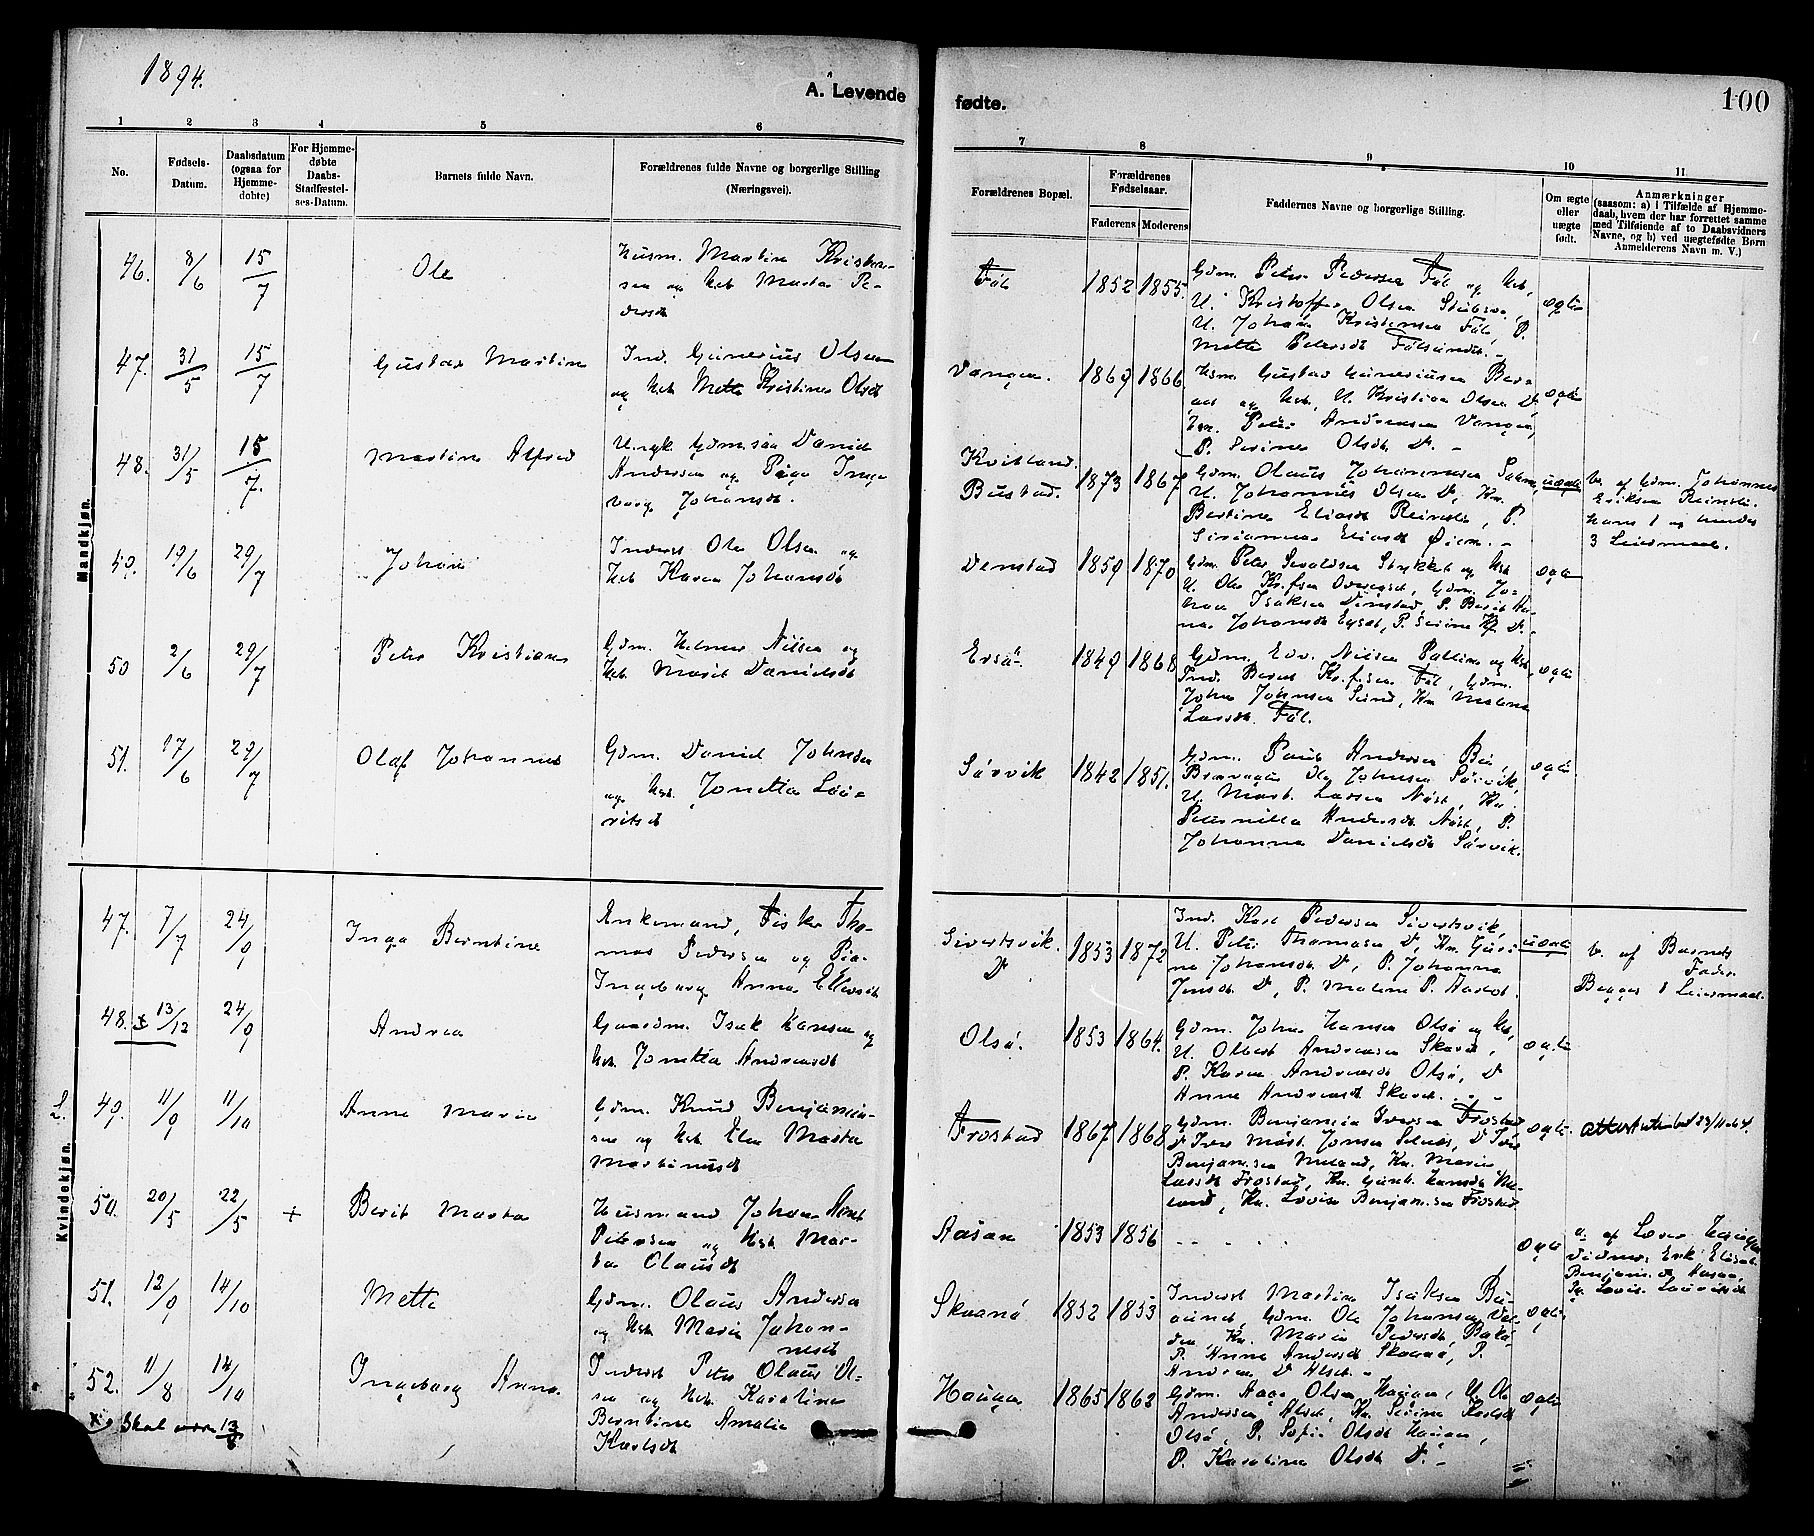 1894.
A. Levende
fødte.
100
1 2 3 4 5 6
7 8 9 10 11
No.
Fødsels-
Datum.
Daabsdatum
(ogsaa for
Hjemme-
døbte)
For Hjemme-
døbte
Daabs-
Stadfæstel-
ses-Datum.
Barnets fulde Navn.
Forældrenes fulde Navne og borgerlige Stilling
(Næringsvei).
Forældrenes Bopæl.
Forældrenes
Fødselsaar.
Faderens
Moderens
Faddernes Navne og borgerlige Stilling.
Om ægte
eller
uægte
født.
Anmærkninger
(saasom: a) i Tilfælde af Hjemme-
daab, hvem der har forrettet samme
med Tilføiende af to Daabsvidners
Navne, og b) ved uægtefødte Børn
Anmelderens Navn m. V.)
Mandkjøn.
46. 8/6 15/7 Ole
Husm. Martin Kristen-
sen og Hst. Marta Pe-
dersdt
Føl 1852 1855.
Gdm. Peter Pedersen Føl og Hst,
U. Kristoffer Olsen
U. Johan Kristensen Føl, P.
Mette Petersdt Følsundet. -
ægte
47. 31/5 15/7 Gustav Martin
Ind. Gunerius Olsen
og Hst Mette Kristine Olsdt
Vangen. 1869 1866
Hsm. Gustav Guneriusen
og Hst, U. Kristian Olsen D
Peter Andreasen Vangen,
P. Serine Olsdt D. -
ægte
48. 31/5 15/7. Martin Alfred
U.ugk. Gdm.søn Daniel
Andersen og Pige Inge
borg Johansdt.
Kvitland.
Bustad. 1873 1867
Gdm. Olaus Johannesen
U. Johannes Olsen D, Kn.
Bertine Eliasdt Reinsli, P.
Eliasdt Øien. -
uægte
b. af Gdm. Johannes
Eriksen Reinsli.
hans 1 og hendes
3 Leiermaal.
49. 19/6 29/7 Johan
Inderst Ole Olsen og
Hst Karen Johansdt
Venstad 1859 1870
Gdm. Peter Sivaldsen Stykket og Hst
U. Ole Kr.fsen, Gdm. Jo-
han Isaksen Venstad, P. Berit An-
na Johansdt, P. Serine D. -
ægte
50 2/6 29/7 Peter Kristian
Gdm. Helmer Nilsen og
Hst. Marit Danielsdt
Ersø 1849 1868
Gdm. Edv. Nilsen og Hst,
Ind. Bernt Kr.fsen Føl, Gdm.
Johan Johnsen Sund, Kn Malena
Larsdt. Føl.
ægte
51. 17/6 29/7 Olaf Johannes
Gdm. Daniel Johnsen
og Hst. Jonetta Lau-
ritsdt
Sørvik 1842 1851.
Gdm. Paul Andersen
Ole Johnsen Sørvik,
U. Mort. Larsen Nøst, Kn.
Peternilla Andersdt Nøst, P.
Johanna Danielsdt Sørvik.
ægte
Kvindekjøn.
47. 7/7 24/9 Inga Berntine
Enkemand, Fisker Tho-
mas Pedersen og Pia-
Ingeborg Anna Ellevsdt
Sivertsvik.
D 1853 1872
Ind. Karl Pedersen Sivertsvik,
U. Peter Thomasen D, Kn. Guri-
na Johansdt D, P. Johanna
Jensdt D, P. Malene P.
uægte
b. af Barnets
Fader
Begges 1 Leiermaal.
48. x 13/12 24/9 Andrea
Gaardm. Isak Hansen og
Hst. Jonetta Andreasdt
Olsø. 1853 1864.
Gdm. Johan Hansen Olsø og Hst,
U. Olbert Andreasen Skard,
P. Karen Andreasdt Olsø, D
Anne Andreasdt Skard. -
ægte
49. 11/9 11/10 Anne Marie
Gdm. Knud Benjamin-
sen og Hst Elen Marta
Martinusdt
Frostad 1867 1868
Gdm. Benjamin Iversen Frostad
D Iver Mort. Jonsen Selnes, D Iver
Benjaminsen Meland, Kn. Marie
Larsdt Frostad, Kn. Gunh. Hansdt Me-
land, Kn. Lovise Benjaminsen Frostad
ægte
attest utstedt 23/11 64.
50. 20/5 22/5 + Berit Marta
Husmand Johan Arnt
Petersen og Hst Mar-
ta Olausdt
Aasan 1853 1856
- - - -
ægte
a. af Lærer
Vidner: Enk Elisab.
Benjamindt Aasan,
Pg. Lovise Lauritsdt
51. 12/9 14/10 Mette
Gdm. Olaus Andersen
og Hst Marie Johan-
nesdt
Skaanø 1852 1853
Inderst Martin Isaksen
Gdm. Ole Johansen
Kn. Maria Pedersdt
P. Anne Andersdt Skaanø, P.
Andrea D Alset. -
ægte
52. 11/8 14/10 Ingeborg Anna
Inderst Peter Olaus Ol-
sen og Hst. Karoline
Berntine Amalie
Karlsdt
Haugen 1865 1863
Gdm. Aage Olsen Haugen, U. Ole
Andersen Alset, Kn. Serine Karlsdt
Olsø, P. Sofie Olsdt Haugen,
P. Karoline Olsdt D. -
ægte
x Skal være 13/8